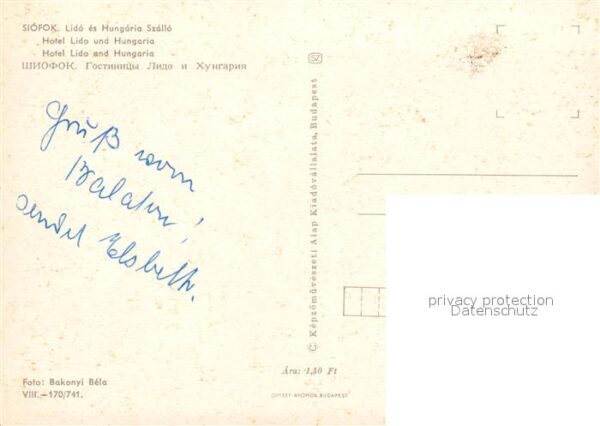 SIÓFOK. Lidó és Hungária Szálló
Hotel Lido und Hungaria
Hotel Lido and Hungaria
ШИОФОК. Гостиницы Лидо и Хунгария
Gruß vom
Balaton!
sendet Elsbeth.
Foto: Bakonyi Béla
VIII.—170/741.
SZ
© Képzőművészeti Alap Kiadóvállalata, Budapest
Ára: 1,50 Ft
OFFSET-NYOMDA, BUDAPEST
privacy protection
Datenschutz